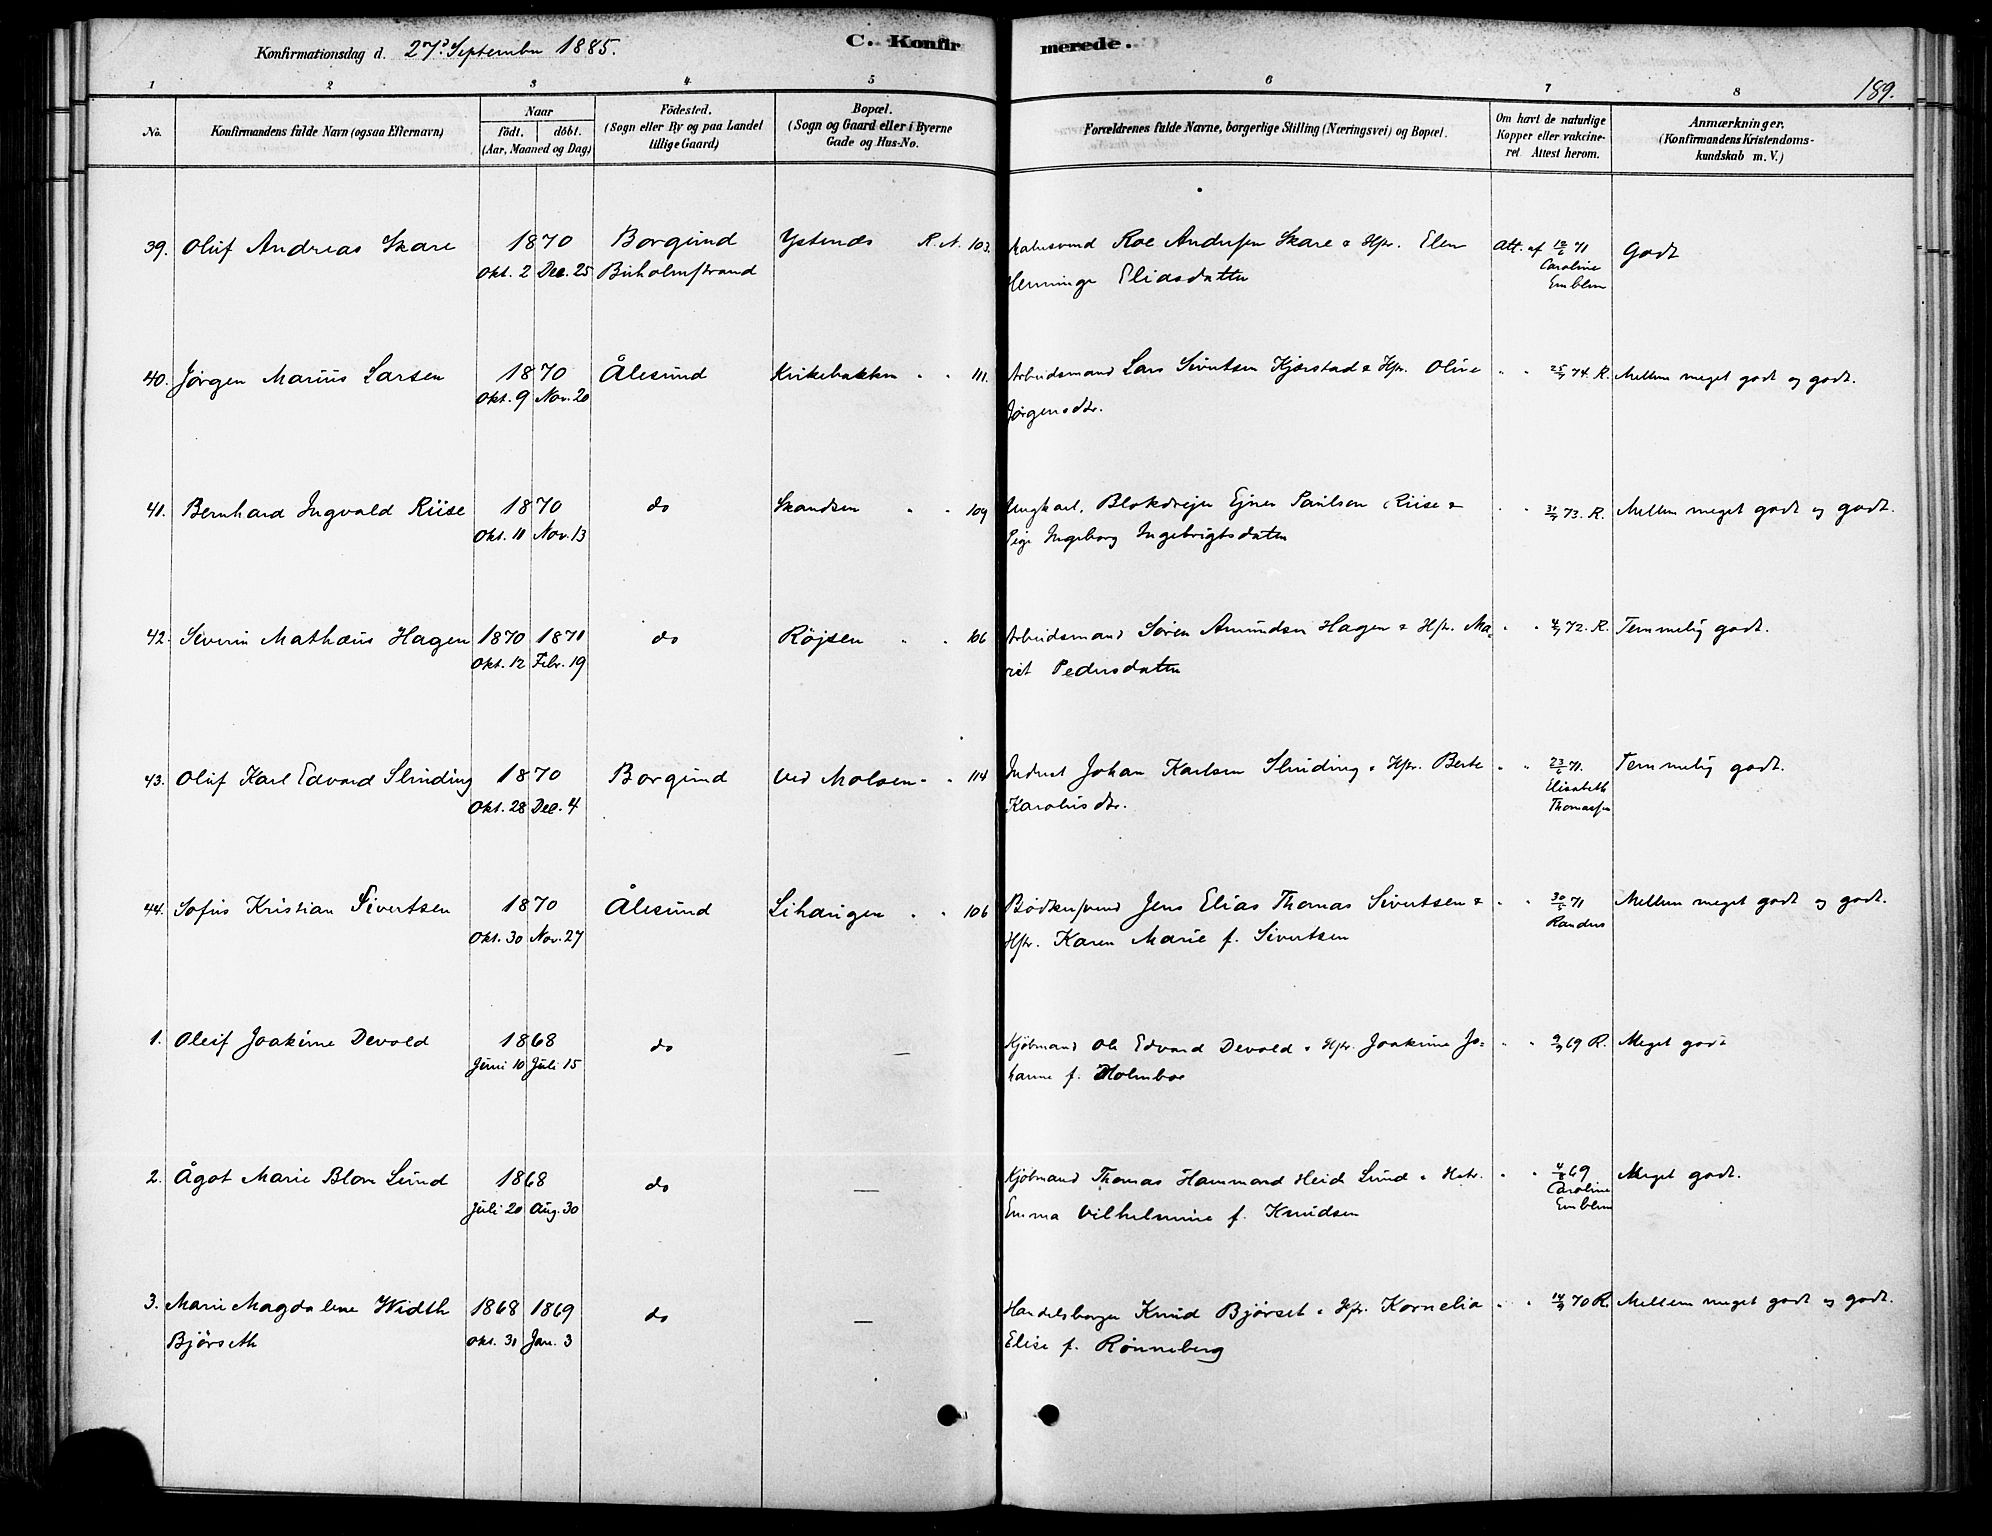 Konfirmationsdag d. 27de September 1885.
C. Konfirmerede.
189.
1 2 3 4 5 6 7 8
No.
Konfirmandens fulde Navn (ogsaa Efternavn)
Naar
födt. döbt.
(Aar, Maaned og Dag)
Födested.
(Sogn eller By og paa Landet
tillige Gaard)
Bopæl.
(Sogn og Gaard eller i Byerne
Gade og Hus-No.
Forældrenes fulde Navne, borgerlige Stilling (Næringsvei) og Bopæl.
Om havt de naturlige
Kopper eller vakcine-
ret. Attest herom.
Anmærkninger.
(Konfirmandens Kristendoms-
kundskab m. V.)
39. Oluf Andreas Skare 1870 Borgund R. N. 103. Roe Andersen Skare & Hstr. Elen Att. af 71 Godt
Okt. 2 Dec. 25 Henninge Eliasdatter Caroline
Emblem
40. Jörgen Marius Larsen 1870 Ålesund Kirkebakken " " 111. Arbeidsmand Lars Sivertsen Kjerstad & Hstr. Oline " " 74. R. Mellem meget godt og godt.
Okt. 9 Nov. 20 Jörgensdtr.
41. Bernhard Ingvald Riise 1870 do Skandsen " " 109 Ungkarl, Blokdreier Ejner Paulsen Riise & " " 73. R. Mellem meget godt og godt.
Okt. 11 Nov. 13 Pige Ingeborg Ingebrigtsdatter
42. Severin Mathæus Hagen 1870 1871 do Röjsen " " 106 Arbeidsmand Sören Amundsen Hagen & Hstr. Ma- " " 72. R. Temmelig godt.
Okt. 12 Febr. 19 rit Pedersdatter
43. Oluf Karl Edvard Slinding 1870 Borgund Ved Moloen " " 114 Inderst Johan Karlsen Slinding & Hstr. Berte " " 23/6 71. Temmelig godt.
Okt. 28 Dec. 4 Karolusdtr. Elisabeth
Thomassen
44. Sofus Kristian Sivertsen 1870 Ålesund Lihaugen " " 106 Bödkersvend Jens Elias Thomas Sivertsen & " " 71 Mellem meget godt og godt.
Okt. 30 Nov. 27 Hstr. Karen Marie f. Sivertsen Randers
1. Oleif Joakime Devold 1868 do — Kjöbmand Ole Edvard Devold & Hstr. Joakime Jo- " " 69 R. Meget godt
Juni 10 Juli 15 hanne f. Holmboe
2. Ågot Marie Blom Lund 1868 do — Kjöbmand Thomas Hammond Heide Lund & Hstr. " " 69 Meget godt.
Juli 20 Aug. 30 Emma Vilhelmine f. Knudsen Caroline
Emblem
3. Marie Magdalene Width 1868 1869 do — Handelsborger Knud Björset & Hstr. Kornelia " " 70 R. Mellem meget godt og godt.
Björseth Okt. 31 Jan. 3 Elise f. Rönneberg